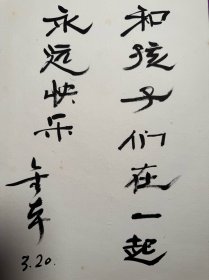 和孩子们在一起
永远快乐
3.20.